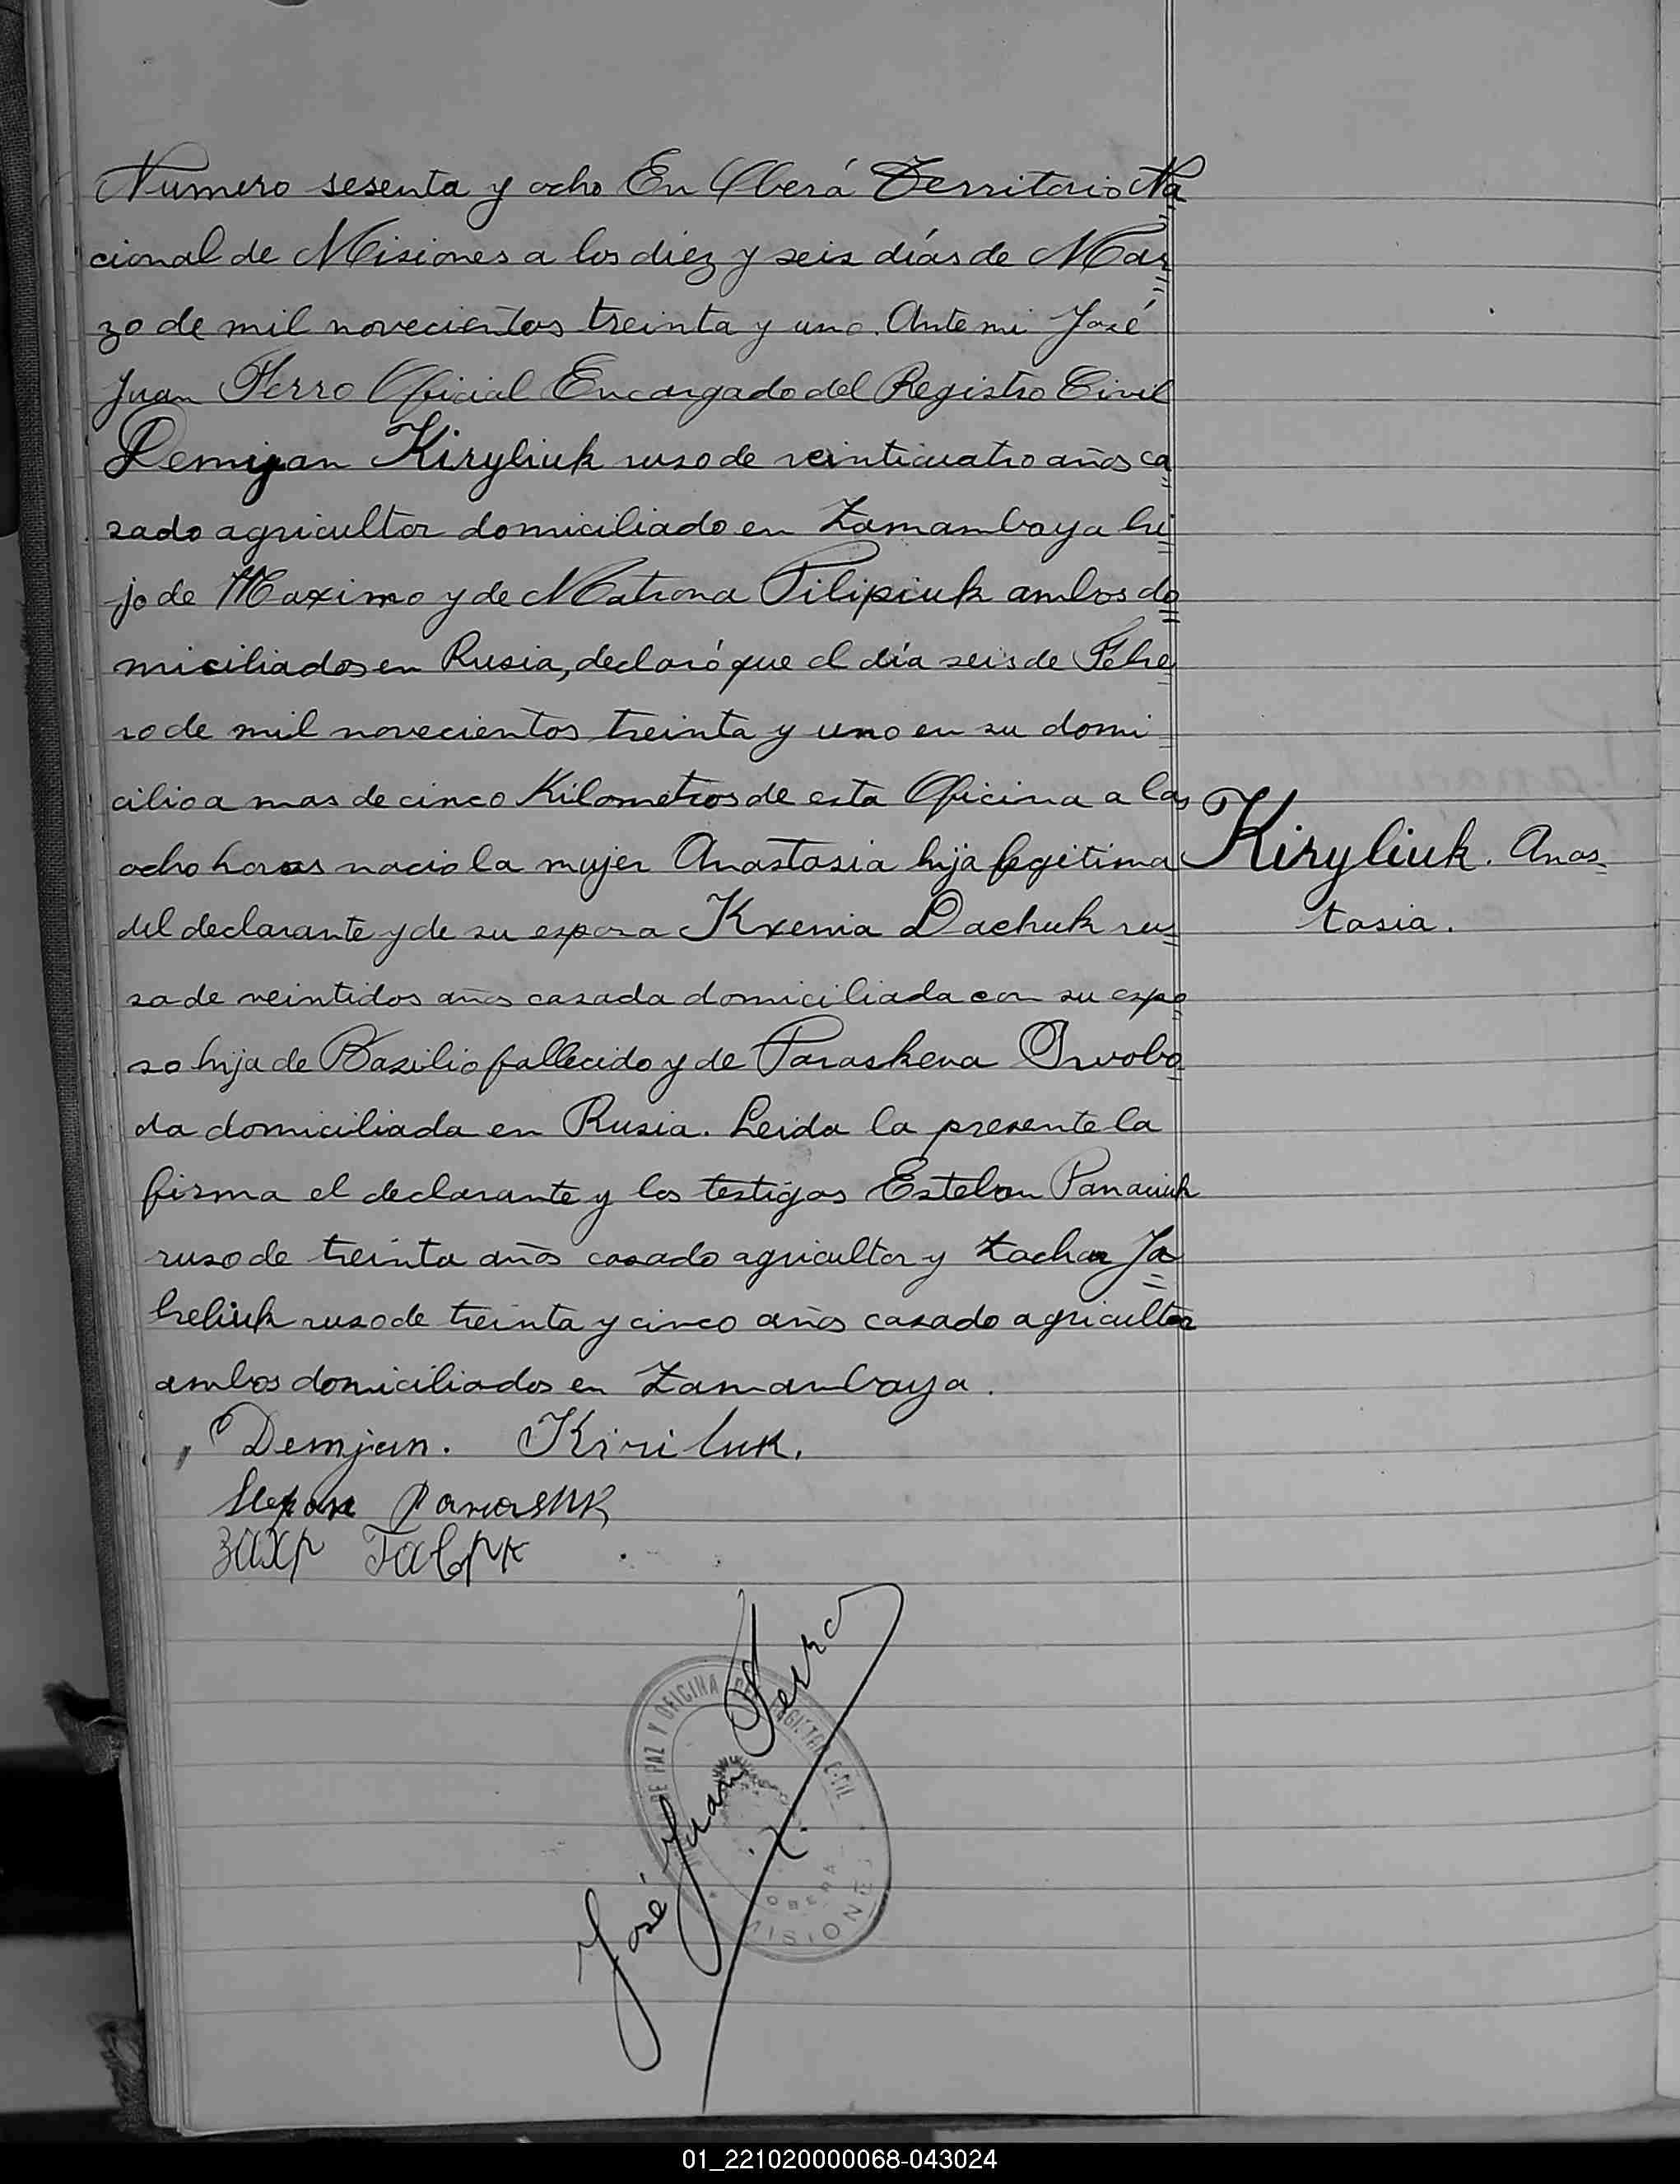 Numero sesenta y ocho En Oberá Territorio Na
cional de Misiones a los diez y seis días de Mar
zo de mil novecientos treinta y uno. Ante mi José
Juan Ferro Oficial Encargado del Registro Civil
Demijan Kiryliuk ruso de veinticuatro años ca
sado agricultor domiciliado en Zamambaya hi
jo de Maximo y de Matrona Pilipiuk ambos do
miciliados en Rusia, declaró que el día seis de Febre
ro de mil novecientos treinta y uno en su domi
cilio a mas de cinco Kilometros de esta Oficina a las
ocho horas nacio la mujer Anastasia hija legitima
Kiryliuk. Anas
tasia.
del declarante y de su esposa Kxenia Dachuk ru
sa de veintidos años casada domiciliada con su espo
so hija de Basilio fallecido y de Paraskeva Swobo
da domiciliada en Rusia. Leida la presente la
firma el declarante y los testigos Esteban Panaciuk
ruso de treinta años casado agricultor y Zachar Ja
breliuk ruso de treinta y cinco años casado agricultor
ambos domiciliados en Zamambaya.
Demjan. Kiriluk.
ЗАХР ГАВРК
José Juan Ferro
DE PAZ Y OFICINA DEL REGISTRO CIVIL
OBERA
MISIONES
01_221020000068-043024